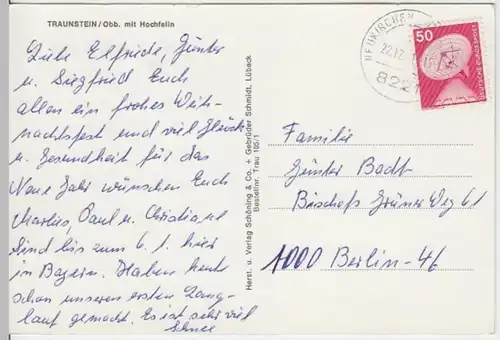 TRAUNSTEIN/Obb. mit Hochfelln
Liebe Elfriede, Günter
u. Siegfried Euch
allen ein frohes Weih-
nachtsfest und viel Glück
u. Gesundheit für das
Neue Jahr wünschen Euch
Marlies, Paul u. Christiane
Sind bis zum 6. 1. hier
in Bayern. Haben heute
schon unseren ersten Lang-
lauf gemacht. Es ist sehr viel
Schnee
Herst. u. Verlag Schöning & Co. + Gebrüder Schmidt, Lübeck
Bestellnr. Trau 105/1
NEUKIRCHEN
22.12.
822
50
DEUTSCHE BUNDESPOST
Familie
Günter Badt
Bischofs Grüner Weg 61
1000 Berlin-46